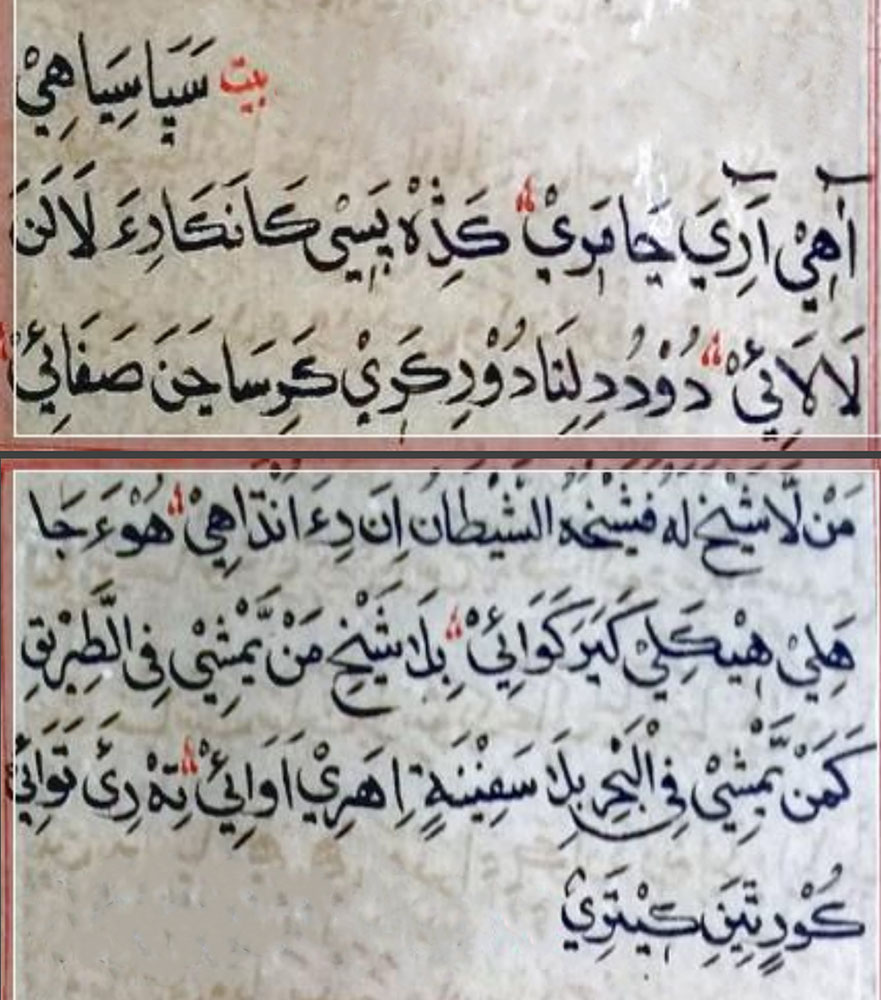 بيت سَپَاسِيَاهِيْ
آهِيْ آرِيَ جَامَرِيْ كَذِهْ پَسِيْ كَانَكَادِءَ لَالَنَ
لَالَائِيْ دُوْدُدِلِنَادُوْرِكَرِيْ كَرِسَاجَنَ صَفَائِيْ
مَنْ لَّاشَيْخ لَه فَشَيْخُهُ الشَّيْطَان اِنَ دِءَ اَنْدَاهِيْ هُوْءَ جَا
هَلِيْ هِيْكِلِيْ كَيَرَكَوَائِيْ بِلَاشَيْخِ مَنْ يَّمْشِيْ فِى الطَّرِيْقِ
كَمَنْ يَّمْشِيْ فِى الْبَحْرِ بِلَا سَفِيْنَةٍ اِهَرِيْ اَوَائِيْ تِهْ دِئَ تَوَائِيْ
كُوْرِتِيَنِ كِيْتَرِيْ